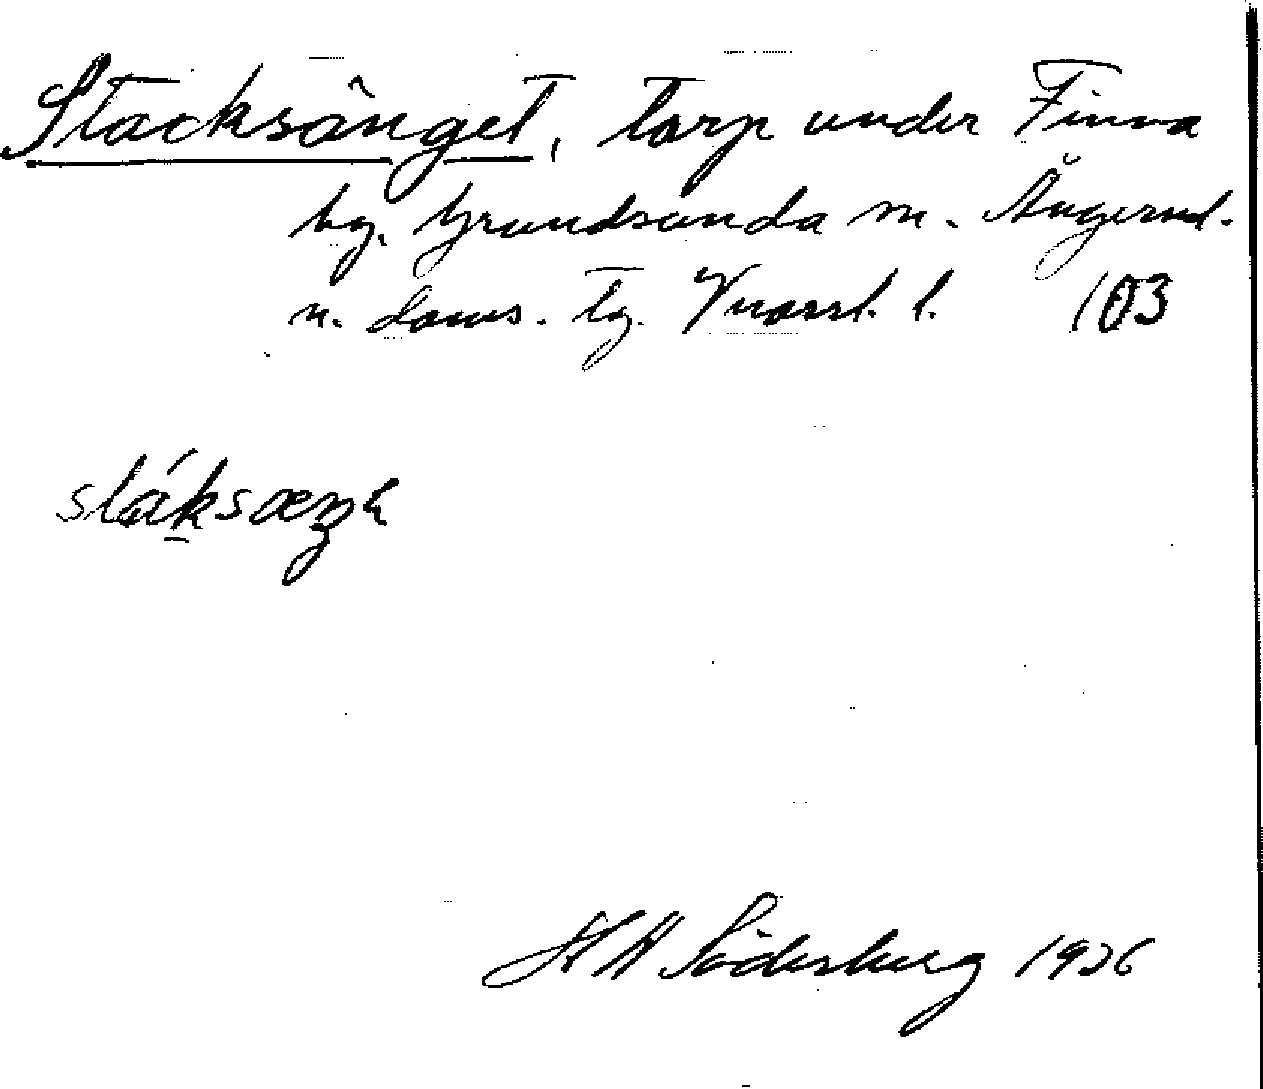 Stacksänget, torp under Finna
by. Grundsunda sn. Ångerml.
n. doms. tg. Vnorrl. l. 103
stáksæŋɛ
H H Söderberg 1926